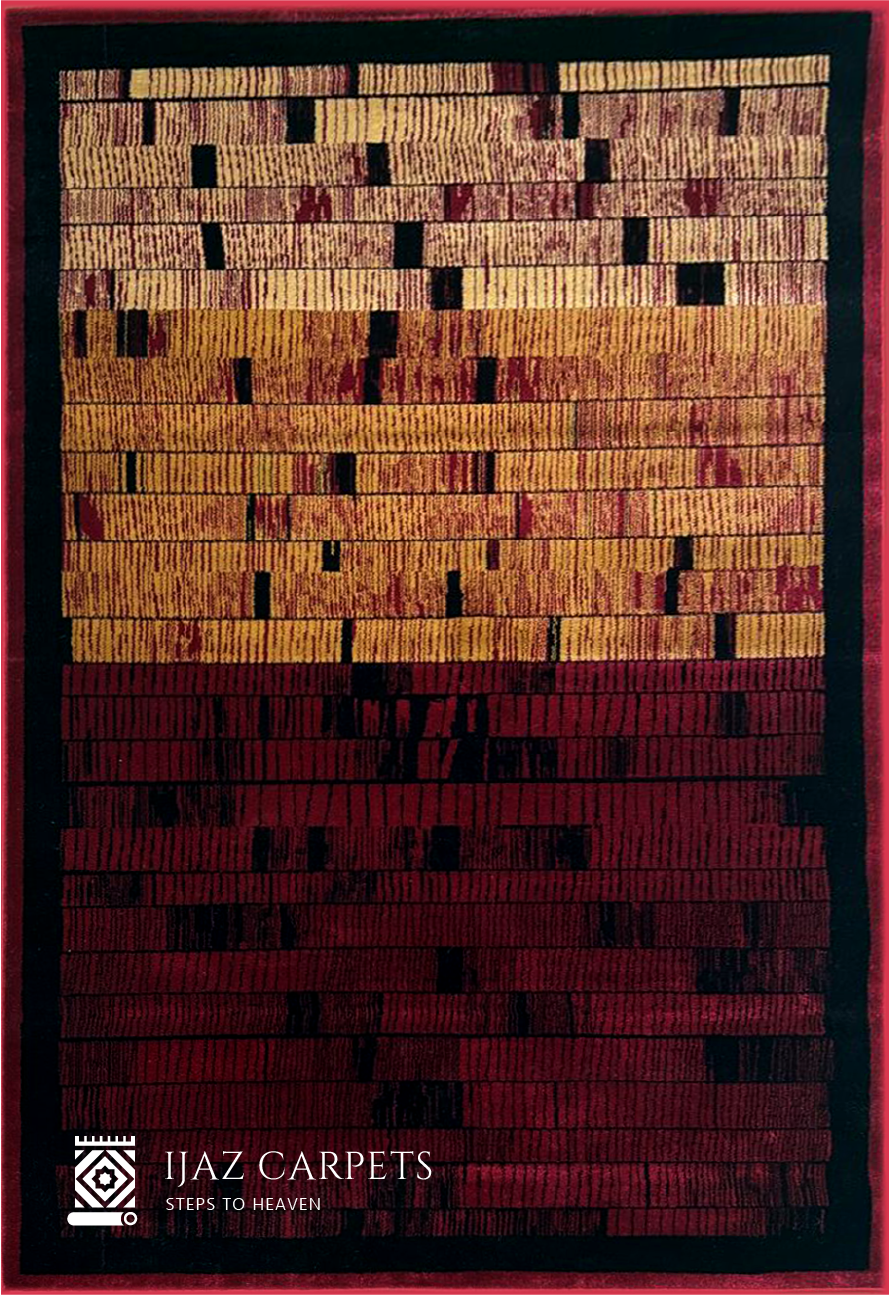 IJAZ CARPETS
STEPS TO HEAVEN